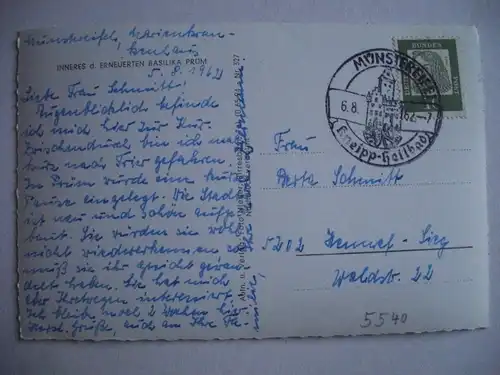 Münstereifel, Marienkran-
kenhaus
INNERES d. ERNEUERTEN BASILIKA PRÜM
5.8.1962
Liebe Frau Schmitt!
Augenblicklich befinde
ich mich hier zur Kur.
Zwischendurch bin ich mal
kurz nach Trier gefahren.
In Prüm wurde eine kurze
Pause eingelegt. Die Stadt
ist neu und schön aufge-
baut. Sie würden sie wohl
nicht wiedererkennen so
muß sie ihr Gesicht geän-
dert haben. Sie hat mich
Ihretwegen interessiert.
Ich bleibe noch 2 Wochen hier.
Herzl. Grüße, auch an Ihre Fa-
milie,
MÜNSTEREIFEL
6.8. 62.-7
Kneipp-Heilbad
BUNDES
POST
Frau
Schmitt
5202 Hennef-Sieg
Waldstr. 22
5540